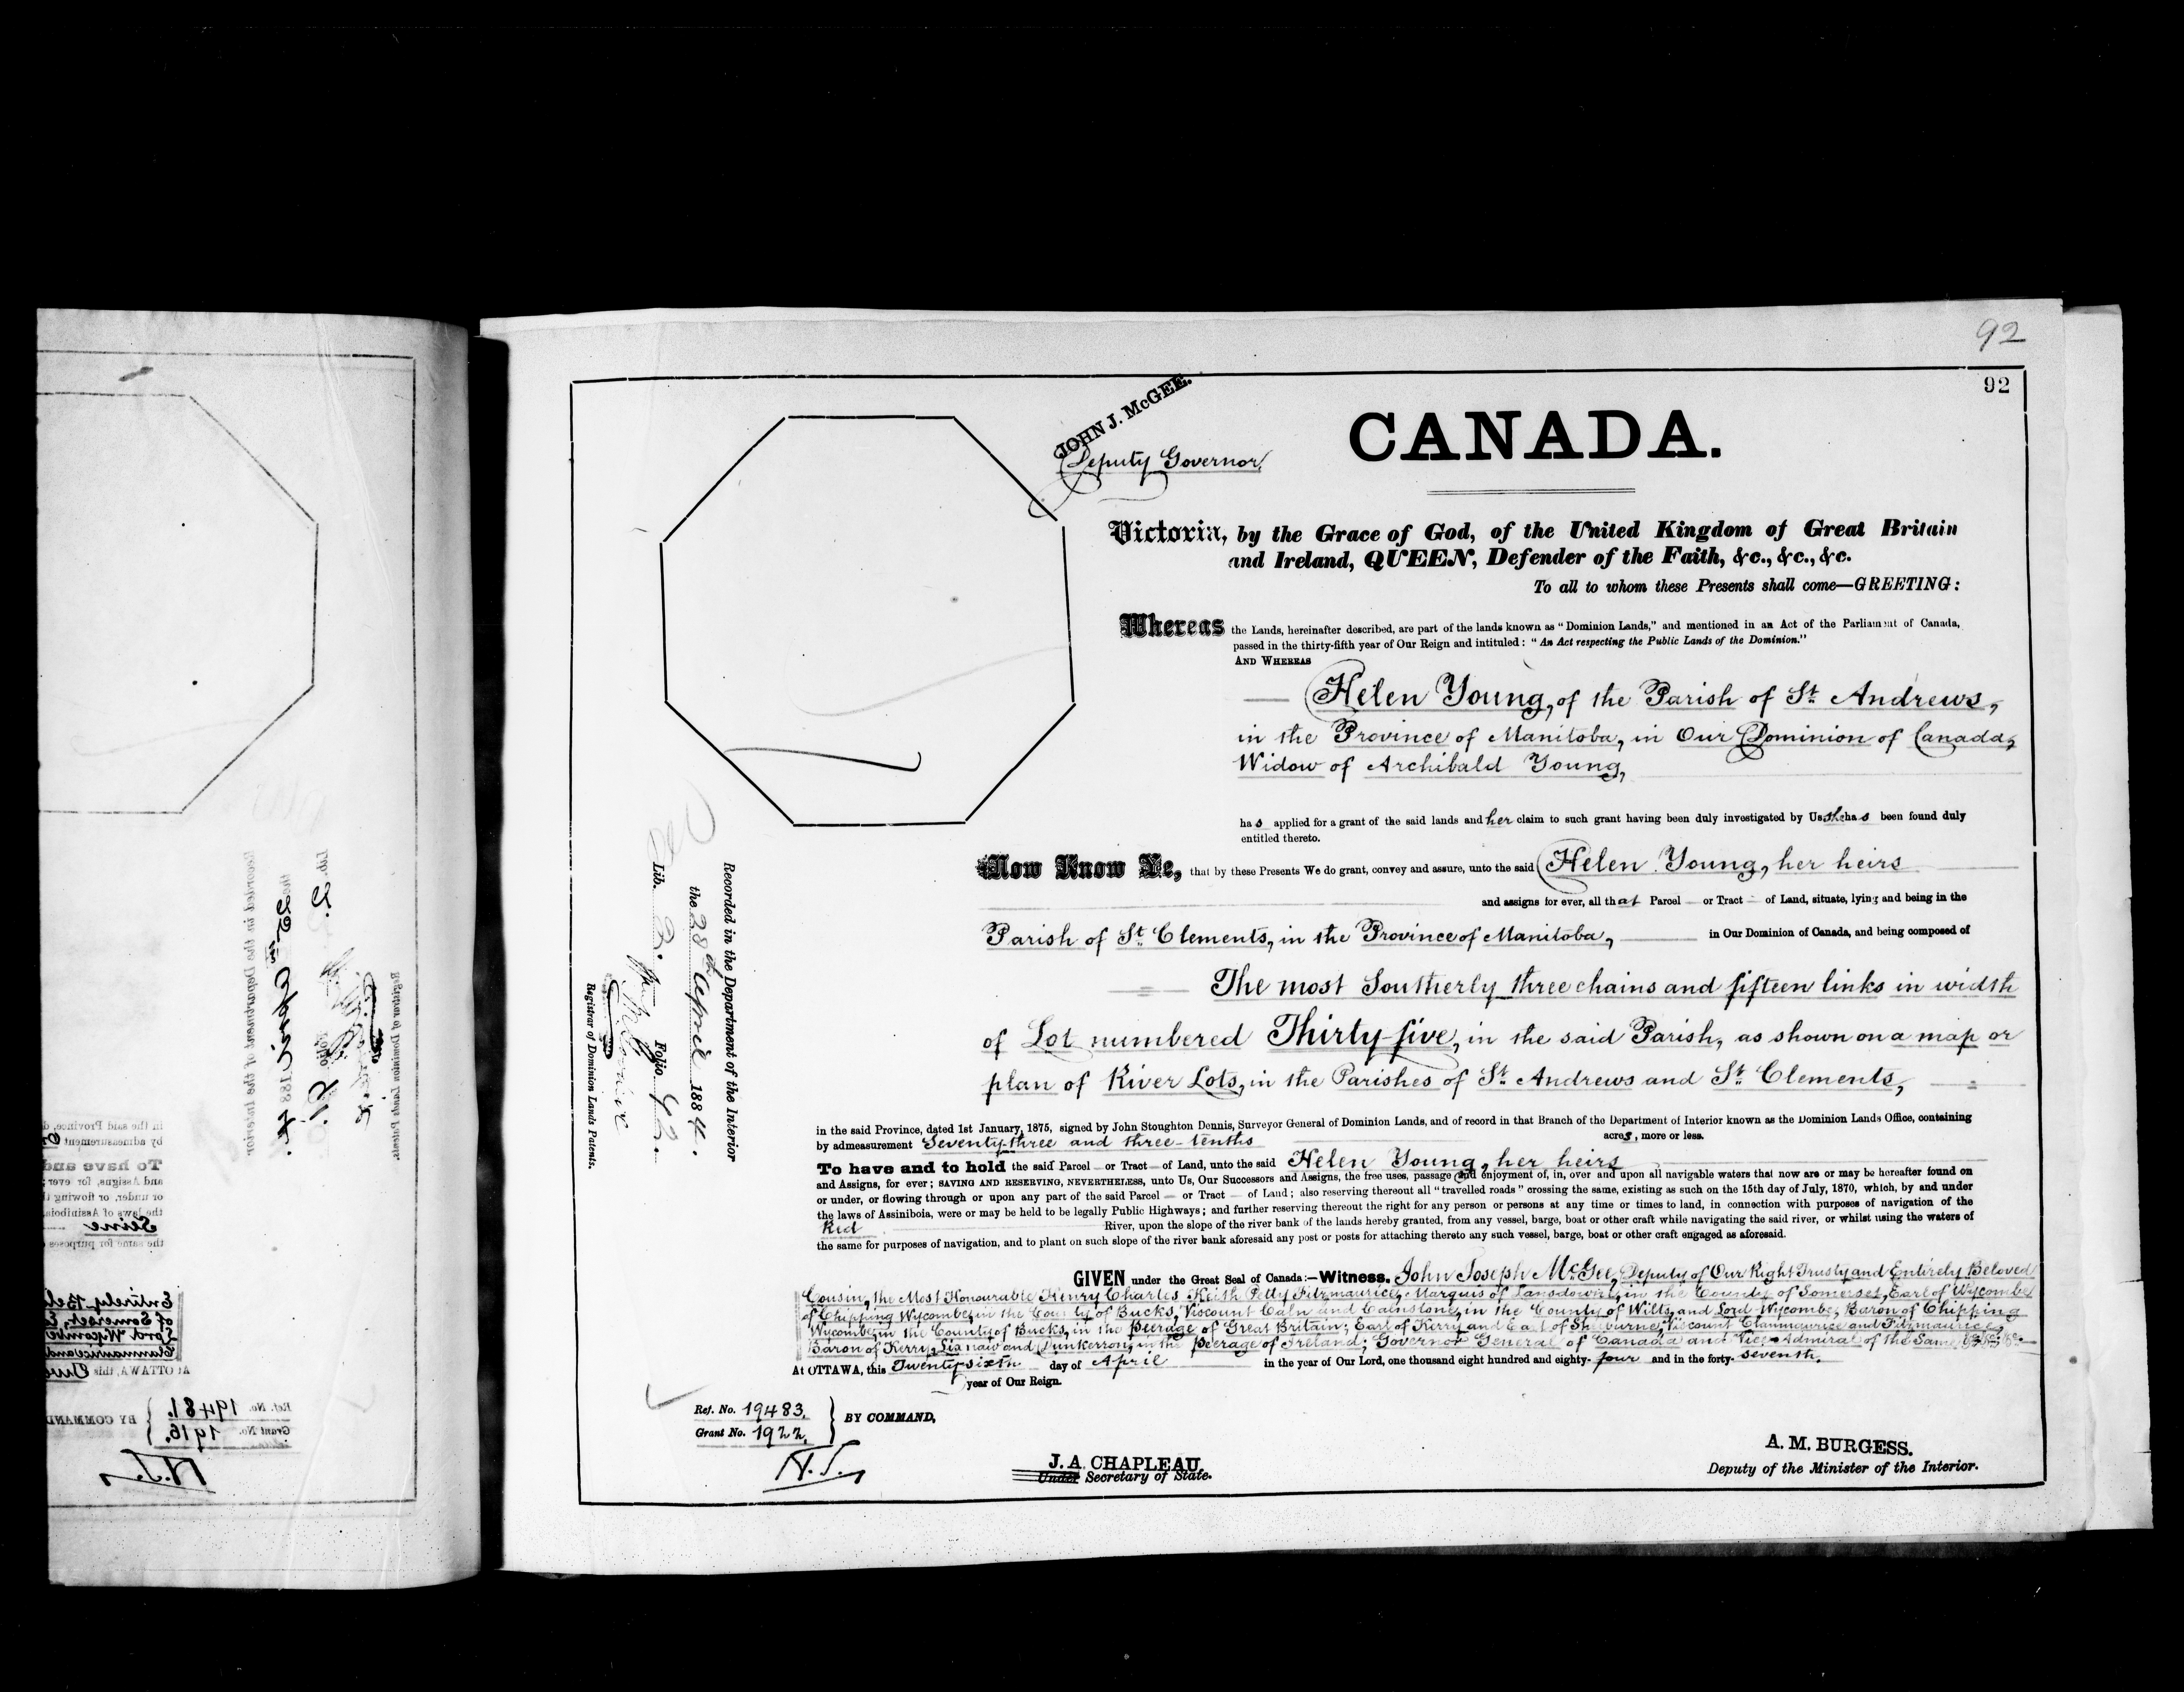 92
92
JOHN J. McGEE.
Deputy Governor,
CANADA.
Victoria, by the Grace of God, of the United Kingdom of Great Britain
and Ireland, QUEEN, Defender of the Faith, &c., &c., &c.
To all to whom these Presents shall come—GREETING:
Whereas the Lands, hereinafter described, are part of the lands known as "Dominion Lands," and mentioned in an Act of the Parliament of Canada,
passed in the thirty-fifth year of Our Reign and intituled: "An Act respecting the Public Lands of the Dominion."
AND WHEREAS
Helen Young, of the Parish of St. Andrews,
in the Province of Manitoba, in Our Dominion of Canada,
Widow of Archibald Young,
has applied for a grant of the said lands and her claim to such grant having been duly investigated by Us she has been found duly
entitled thereto.
Now Know Ye, that by these Presents We do grant, convey and assure, unto the said Helen Young, her heirs
and assigns for ever, all that Parcel or Tract of Land, situate, lying and being in the
Parish of St. Clements, in the Province of Manitoba, in Our Dominion of Canada, and being composed of
The most Southerly three chains and fifteen links in width
of Lot numbered Thirty-five, in the said Parish, as shown on a map or
plan of River Lots, in the Parishes of St. Andrews and St. Clements,
in the said Province, dated 1st January, 1875, signed by John Stoughton Dennis, Surveyor General of Dominion Lands, and of record in that Branch of the Department of Interior known as the Dominion Lands Office, containing
by admeasurement Seventy-three and three-tenths acres, more or less.
To have and to hold the said Parcel or Tract of Land, unto the said Helen Young, her heirs
and Assigns, for ever; SAVING AND RESERVING, NEVERTHELESS, unto Us, Our Successors and Assigns, the free uses, passage and enjoyment of, in, over and upon all navigable waters that now are or may be hereafter found on
or under, or flowing through or upon any part of the said Parcel or Tract of Land; also reserving thereout all "travelled roads" crossing the same, existing as such on the 15th day of July, 1870, which, by and under
the laws of Assiniboia, were or may be held to be legally Public Highways; and further reserving thereout the right for any person or persons at any time or times to land, in connection with purposes of navigation of the
Red River, upon the slope of the river bank of the lands hereby granted, from any vessel, barge, boat or other craft while navigating the said river, or whilst using the waters of
the same for purposes of navigation, and to plant on such slope of the river bank aforesaid any post or posts for attaching thereto any such vessel, barge, boat or other craft engaged as aforesaid.
GIVEN under the Great Seal of Canada:—Witness, John Joseph McGee, Deputy of Our Right Trusty and Entirely Beloved
Cousin, the Most Honourable Henry Charles Keith Petty Fitzmaurice, Marquis of Lansdowne, in the County of Somerset, Earl of Wycombe
of Chipping Wycombe, in the County of Bucks, Viscount Caln and Calnstone, in the County of Wilts, and Lord Wycombe, Baron of Chipping
Wycombe, in the County of Bucks, in the Peerage of Great Britain; Earl of Kerry and Earl of Shelburne, Viscount Clanmaurice and Fitzmaurice,
Baron of Kerry, Lixnaw and Dunkerron, in the Peerage of Ireland; Governor General of Canada and Vice-Admiral of the Same, &c. &c. &c.
At OTTAWA, this Twenty-sixth day of April in the year of Our Lord, one thousand eight hundred and eighty-four and in the forty-seventh,
year of Our Reign.
Ref. No. 19483.
Grant No. 1922.
BY COMMAND,
N.J.
J. A. CHAPLEAU,
Under Secretary of State.
A. M. BURGESS.
Deputy of the Minister of the Interior.
Recorded in the Department of the Interior
the 28th April 1884.
Lib. 3. Folio 92.
Registrar of Dominion Lands Patents.
Seine
Ref. No. 19481.
Grant No. 1916.
BY COMMAND
N.J.